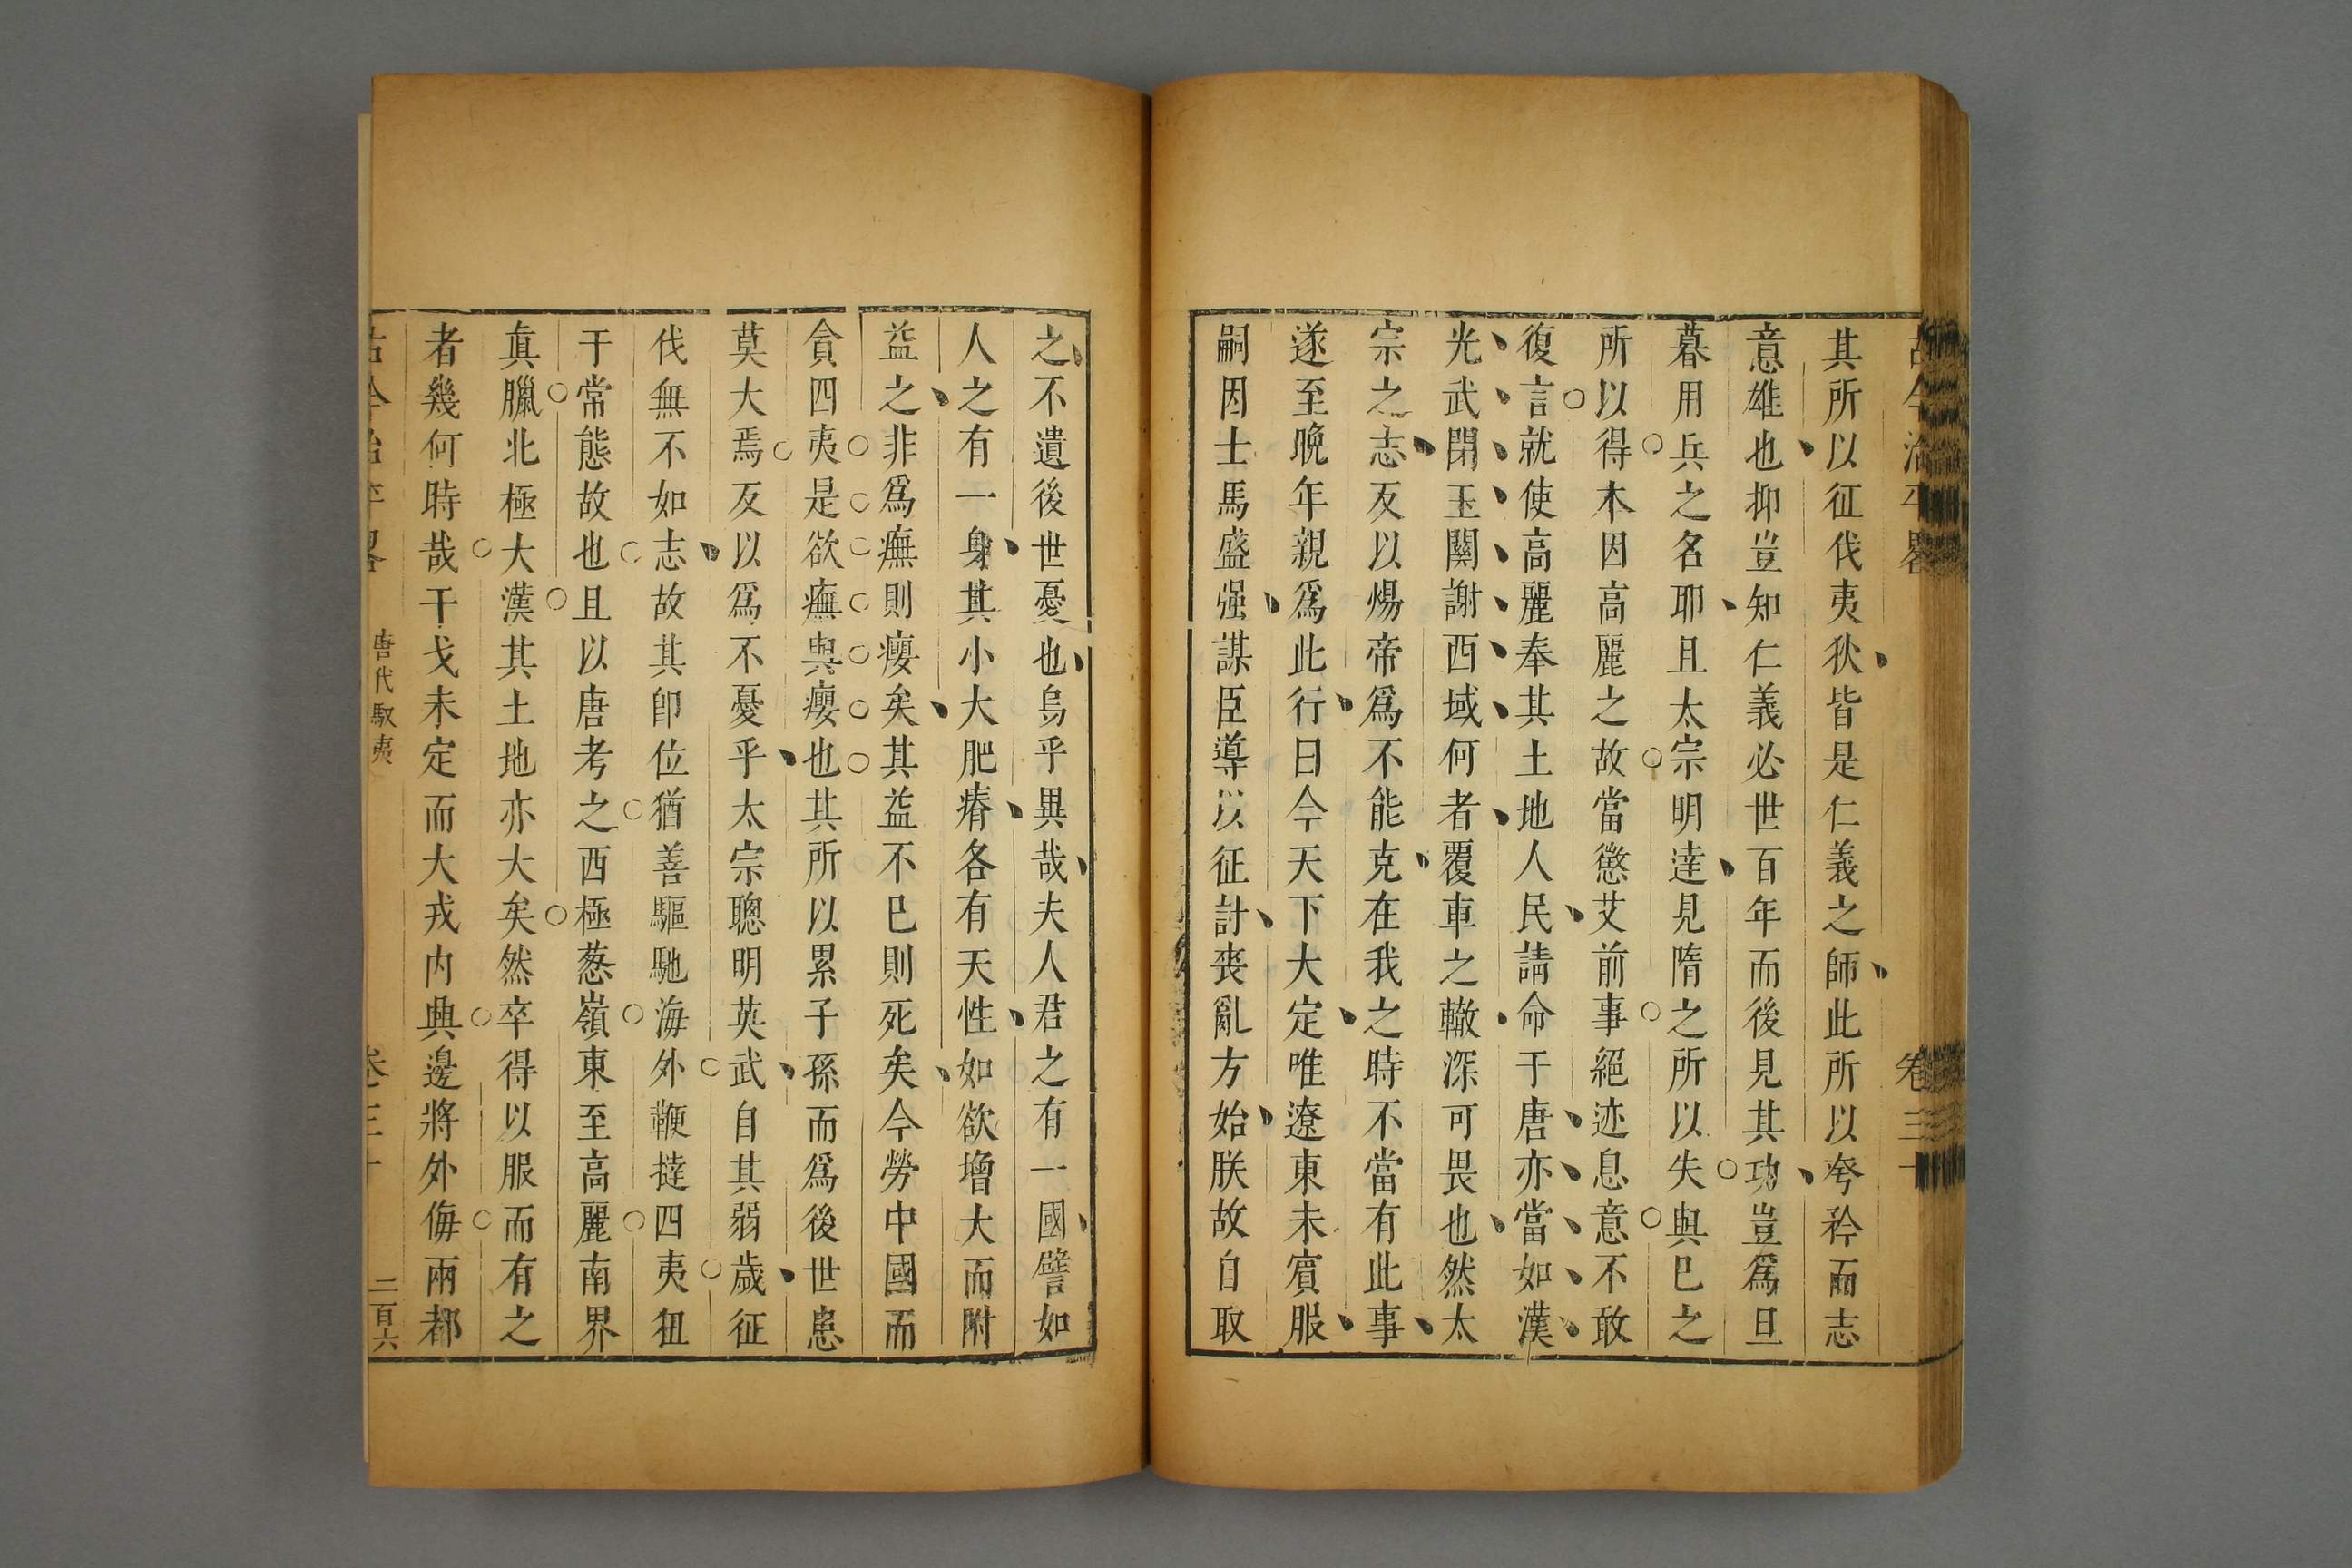 古今治平畧 卷三十
其所以征伐夷狄皆是仁義之師此所以夸矜而志
意雄也抑豈知仁義必世百年而後見其功豈爲旦
暮用兵之名耶且太宗明逹見隋之所以失與已之
所以得木因高麗之故當懲艾前事絕迹息意不敢
復言就使高麗奉其土地人民請命于唐亦當如漢
光武閉玉關謝西域何者覆車之轍深可畏也然太
宗之志反以煬帝爲不能克在我之時不當有此事
遂至晚年親爲此行曰今天下大定唯遼東未賓服
嗣因士馬盛强謀臣導以征討喪亂方始朕故自取
之不遺後世憂也烏乎異哉夫人君之有一國譬如
人之有一身其小大肥瘠各有天性如欲增大而附
益之非爲癰則癭矣其益不已則死矣今勞中國而
貪四夷是欲癰與癭也其所以累子孫而爲後世患
莫大焉反以爲不憂乎太宗聰明英武自其弱歲征
伐無不如志故其卽位猶善驅馳海外鞭撻四夷狃
于常態故也且以唐考之西極葱嶺東至高麗南界
眞臘北極大漠其土地亦大矣然卒得以服而有之
者幾何時哉干戈未定而大戎内興邊將外侮兩都
古今治平畧 唐代馭夷 卷三十 二百六